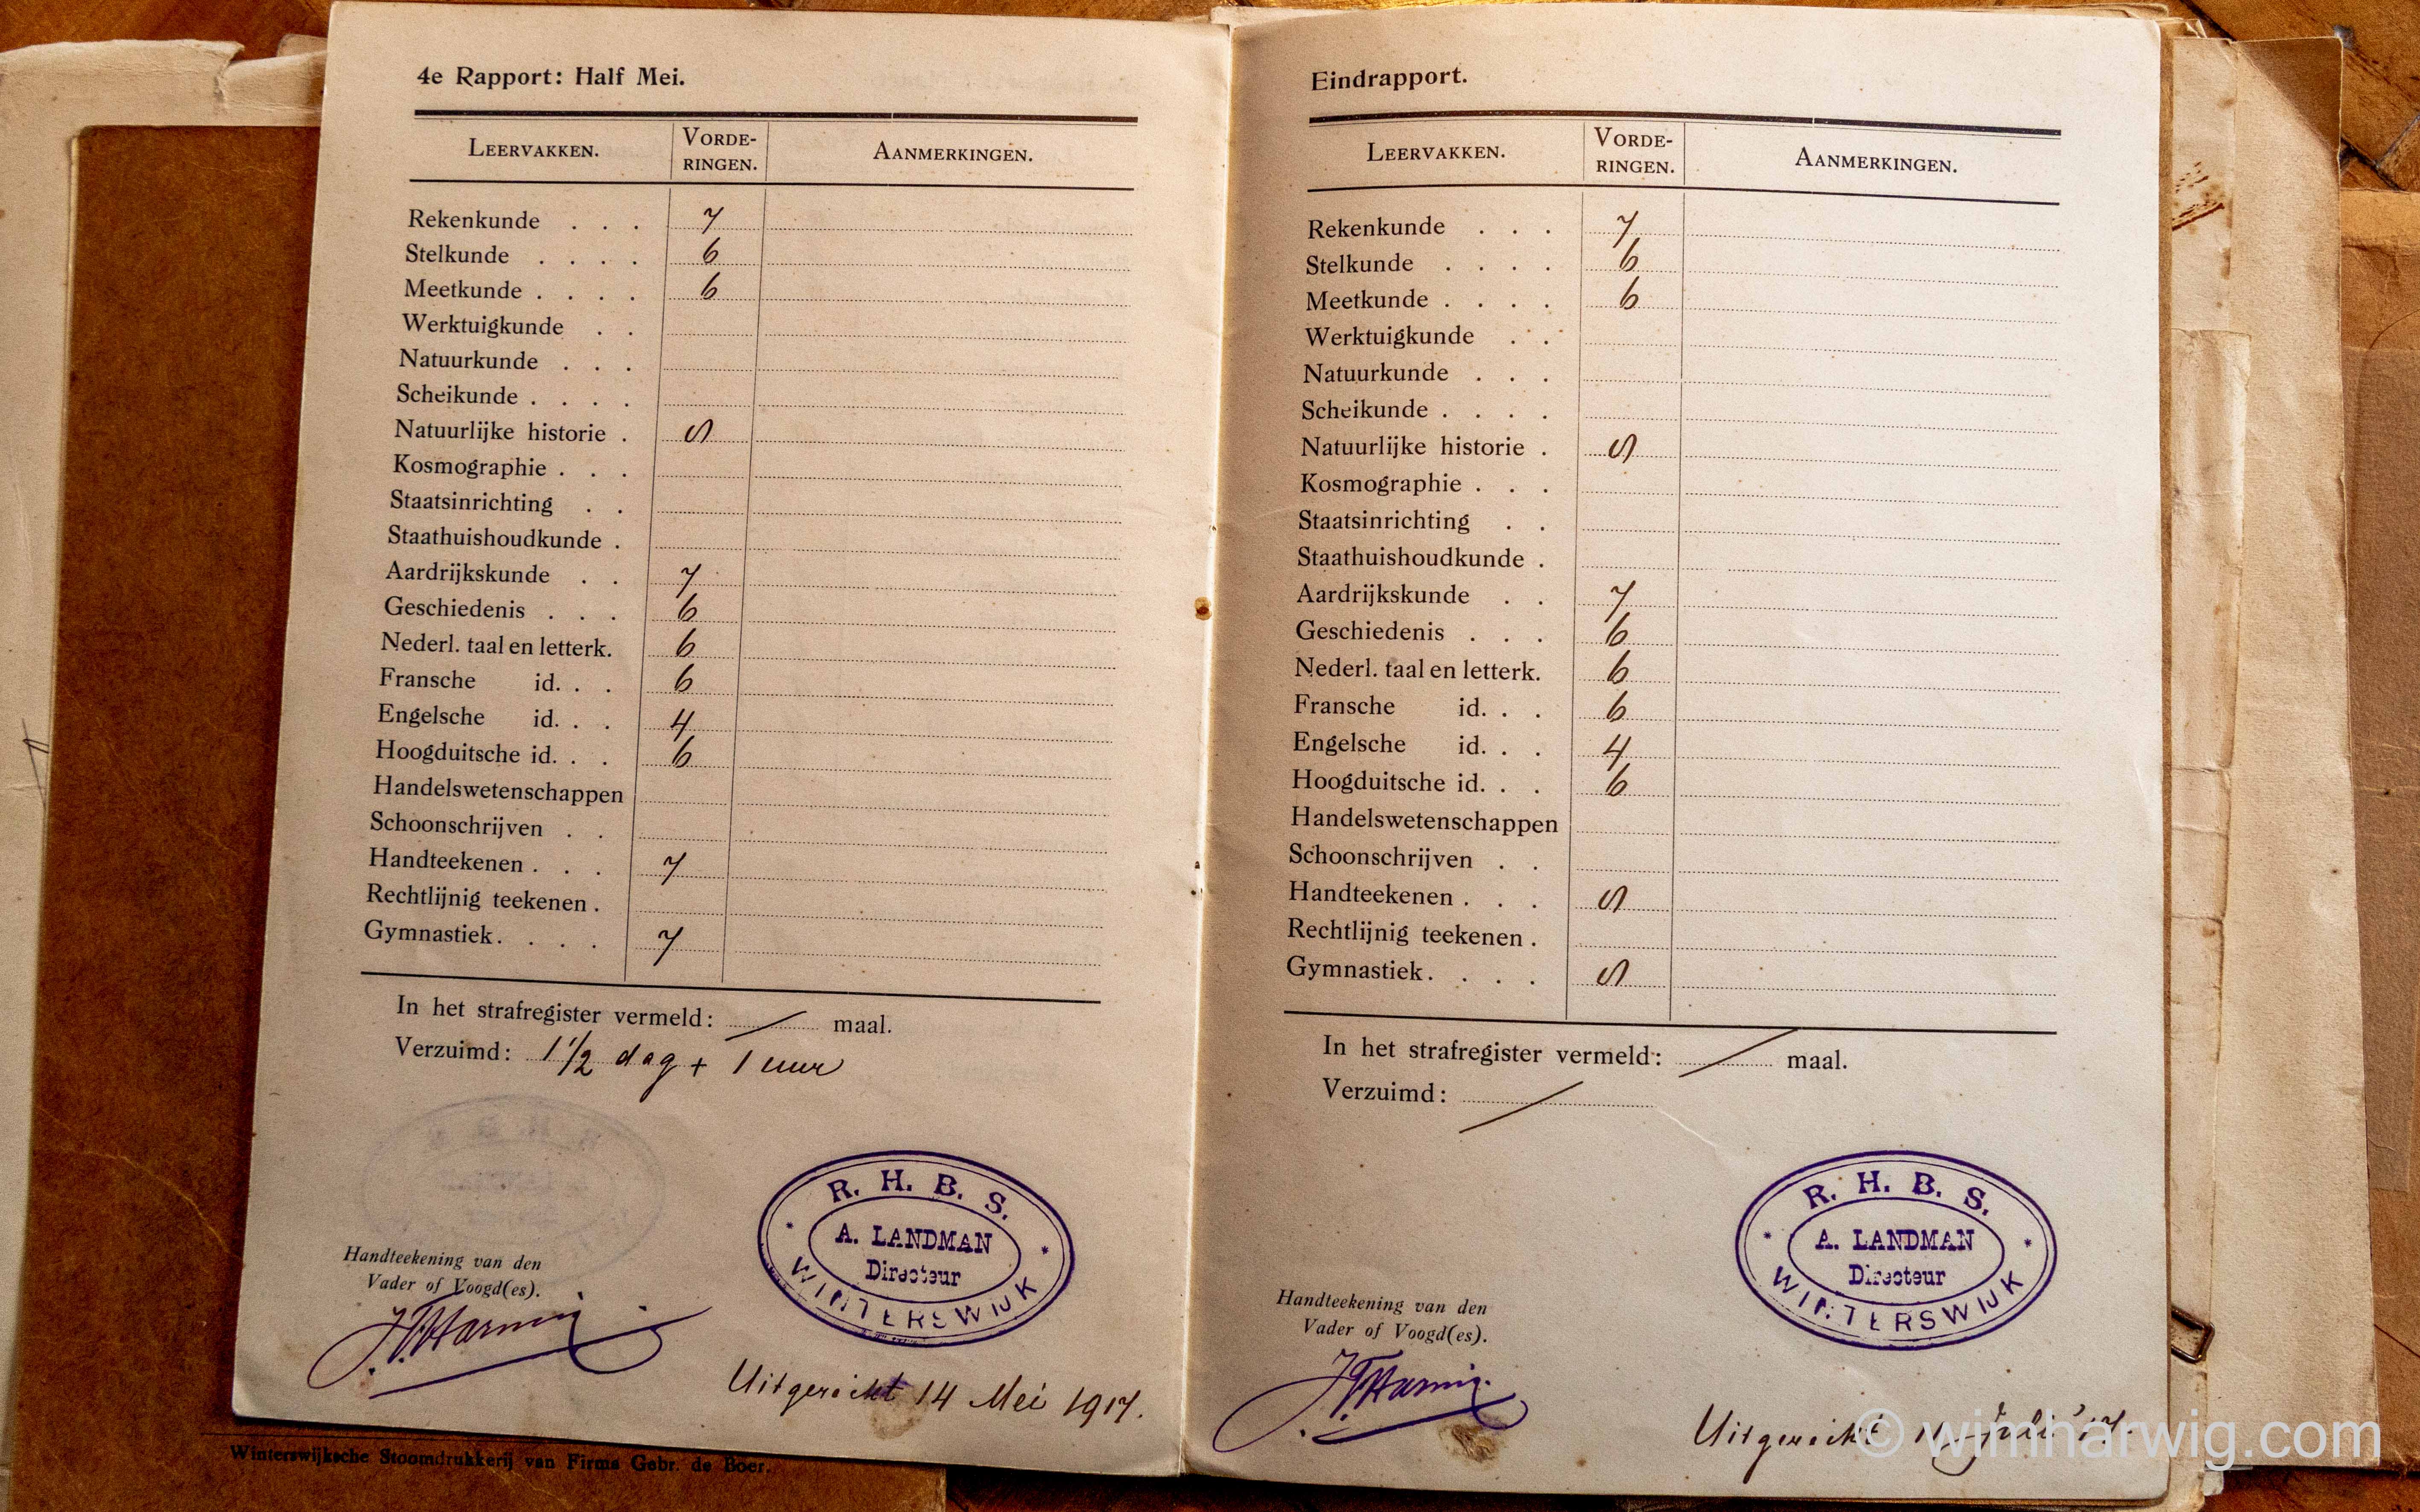 4e Rapport: Half Mei.
LEERVAKKEN. VORDE-RINGEN. AANMERKINGEN.
Rekenkunde . . . 7
Stelkunde . . . . 6
Meetkunde . . . . 6
Werktuigkunde . .
Natuurkunde . . .
Scheikunde . . . .
Natuurlijke historie . 5
Kosmographie . . .
Staatsinrichting . .
Staathuishoudkunde .
Aardrijkskunde . . 7
Geschiedenis . . . 6
Nederl. taal en letterk. 6
Fransche id. . . 6
Engelsche id. . . 4
Hoogduitsche id. . . 6
Handelswetenschappen
Schoonschrijven . .
Handteekenen . . . 7
Rechtlijnig teekenen .
Gymnastiek . . . . 7
In het strafregister vermeld: / maal.
Verzuimd: 1 1/2 dag + 1 uur
R. H. B. S.
A. LANDMAN
Directeur
WINTERSWIJK
Handteekening van den
Vader of Voogd(es).
Uitgereikt 14 Mei 1917.
Winterswijksche Stoomdrukkerij van Firma Gebr. de Boer.
Eindrapport.
LEERVAKKEN. VORDE-RINGEN. AANMERKINGEN.
Rekenkunde . . . 7
Stelkunde . . . . 6
Meetkunde . . . . 6
Werktuigkunde . .
Natuurkunde . . .
Scheikunde . . . .
Natuurlijke historie . 5
Kosmographie . . .
Staatsinrichting . .
Staathuishoudkunde .
Aardrijkskunde . . 7
Geschiedenis . . . 6
Nederl. taal en letterk. 6
Fransche id. . . 6
Engelsche id. . . 4
Hoogduitsche id. . . 6
Handelswetenschappen
Schoonschrijven . .
Handteekenen . . . 5
Rechtlijnig teekenen .
Gymnastiek . . . . 5
In het strafregister vermeld: / maal.
Verzuimd: /
R. H. B. S.
A. LANDMAN
Directeur
WINTERSWIJK
Handteekening van den
Vader of Voogd(es).
Uitgereikt Juli '17.
© wimharwig.com